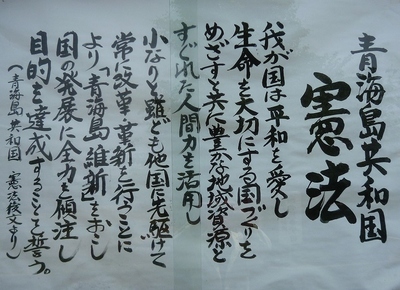 青海島共和国
憲法
我が国は平和を愛し
生命を大切にする国づくりを
めざすと共に豊かな地域資源と
すぐれた人間力を活用し
小なりと雖ども他国に先駆けて
常に改革・革新を行うことに
より「青海島維新」をおこし
国の発展に全力を傾注し
目的を達成することを誓う。
(青海島共和国 憲法抜文より)